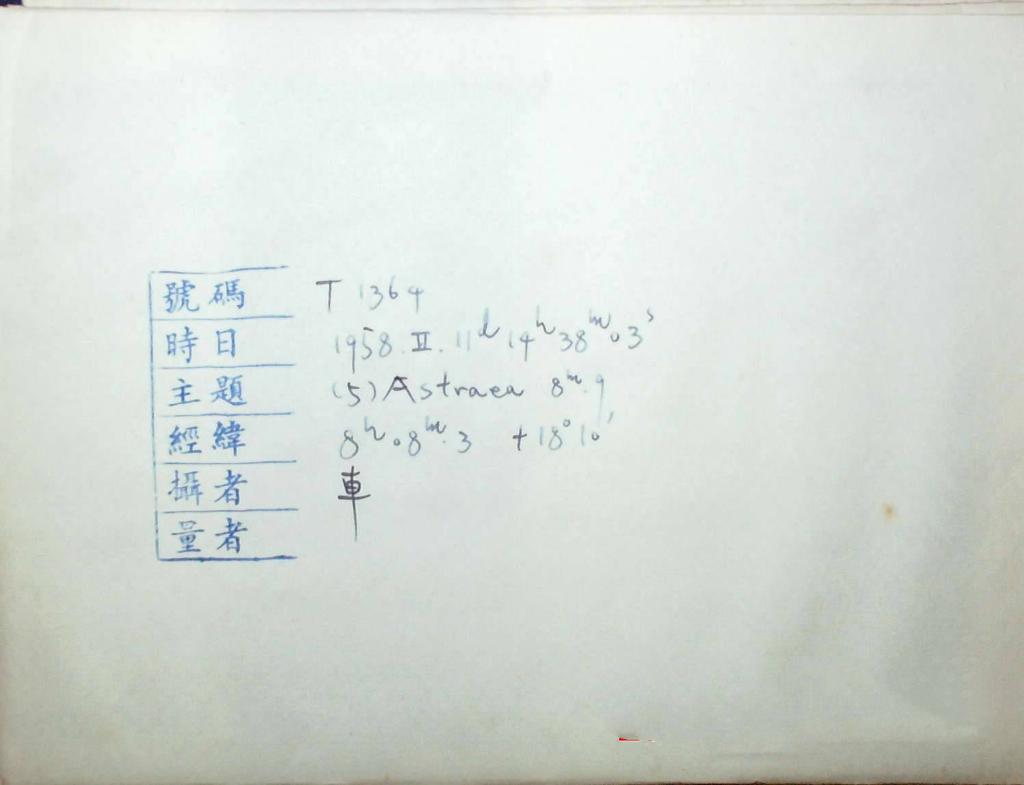 號碼 T 1364
時日 1958.II.11ᵈ14ʰ38ᵐ03ˢ
主題 (5) Astraea 8ᵐ.9
經緯 8ʰ08ᵐ.3 +18°10′
攝者 車
量者